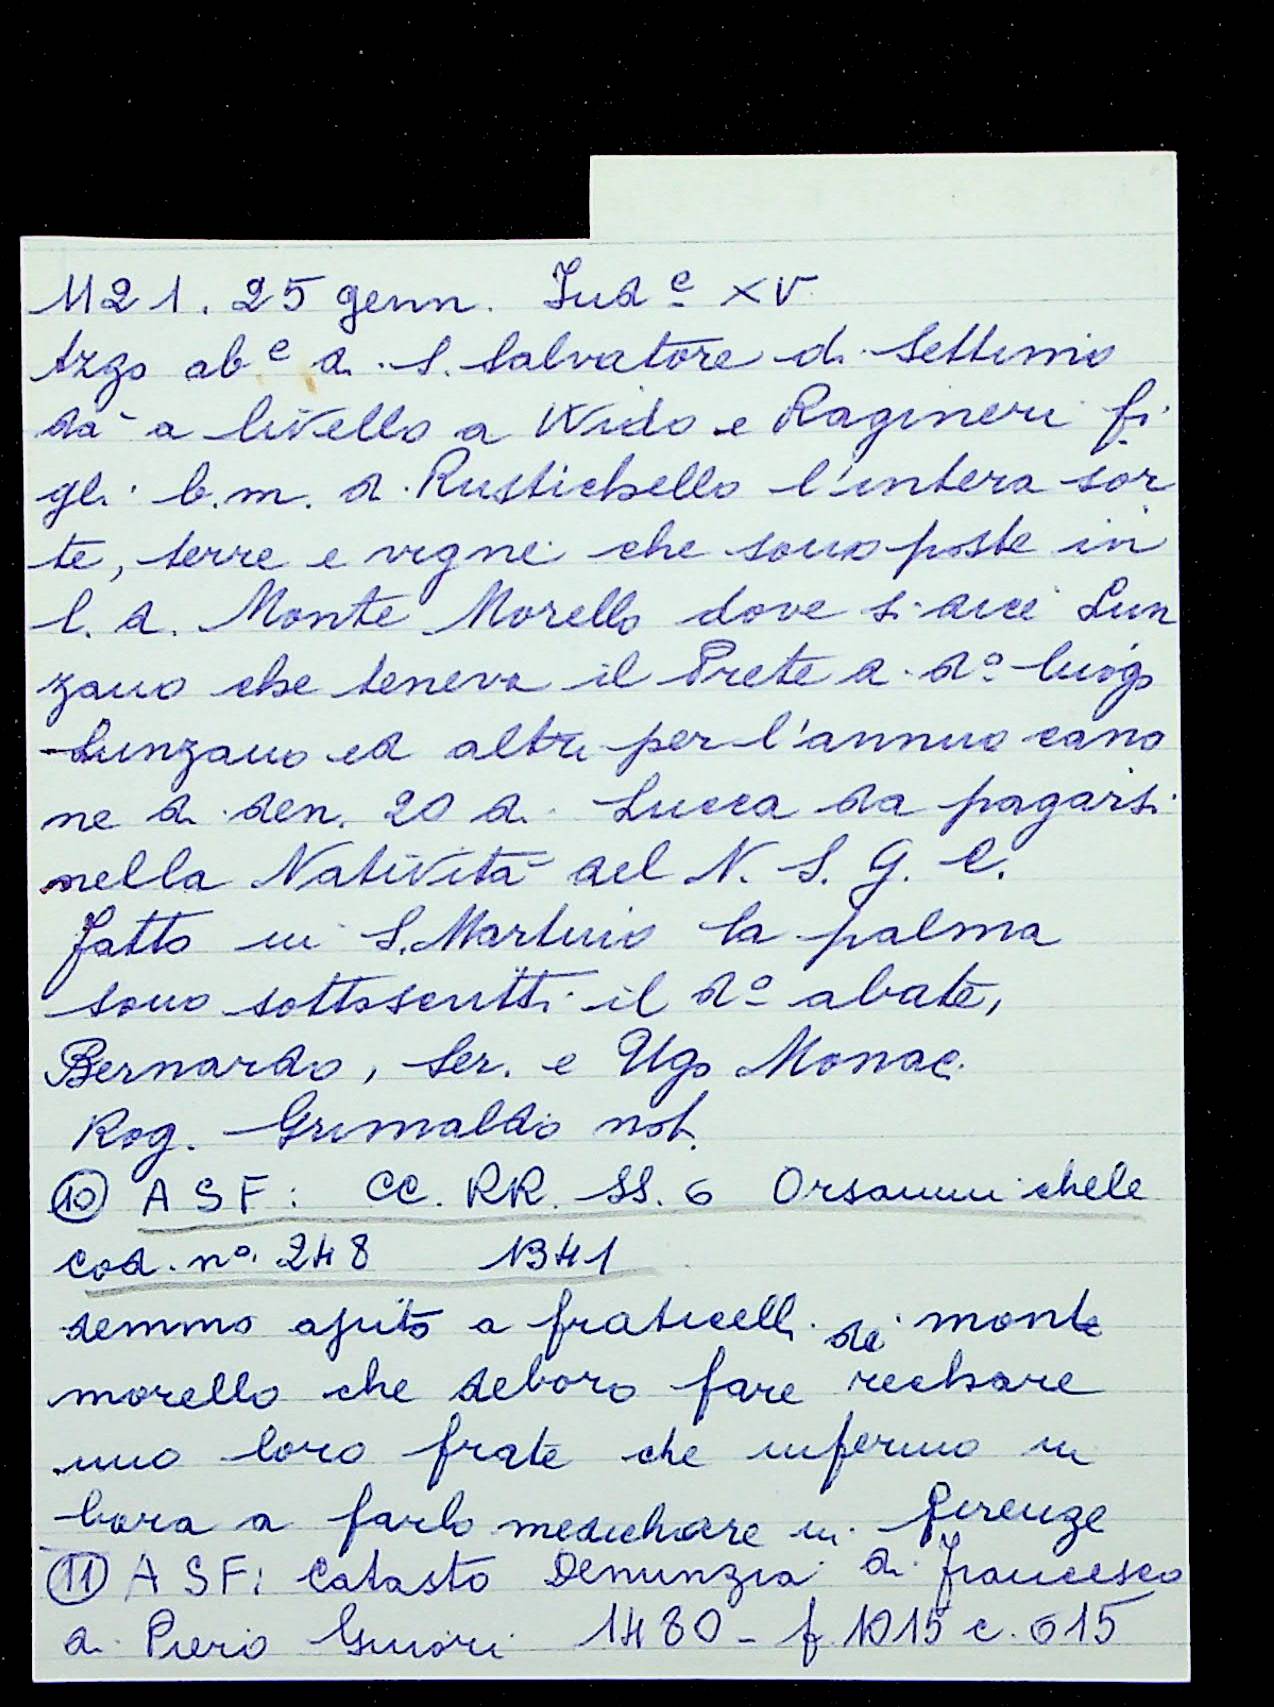 1121. 25 genn. Ind.e XV
Azzo ab.e di S. Salvatore di Settimo
dà a livello a Wido e Ragineri fi
gli b.m. di Rustichello l'intera sor
te, terre e vigne che sono poste in
l. d. Monte Morello dove si dice Lun
zano che teneva il Prete di do luogo
Lunzano ed altri per l'annuo cano
ne di den. 20 di Lucca da pagarsi
nella Natività del N. S. G. C.
fatto in S. Martino la palma
sono sottoscritti il do abate,
Bernardo, Ser. e Ugo Monac.
Rog. Grimaldo not.
10 ASF: CC. RR. SS. 6 Orsanmichele
Cod. no. 248 1341
demmo ajuto a fraticelli de monte
morello che deboro fare rechare
uno loro frate che infermo in
bara a farlo medichare in firenze
11 ASF: Catasto Denunzia di Francesco
di Piero Ginori 1480 - f 1015 c. 615